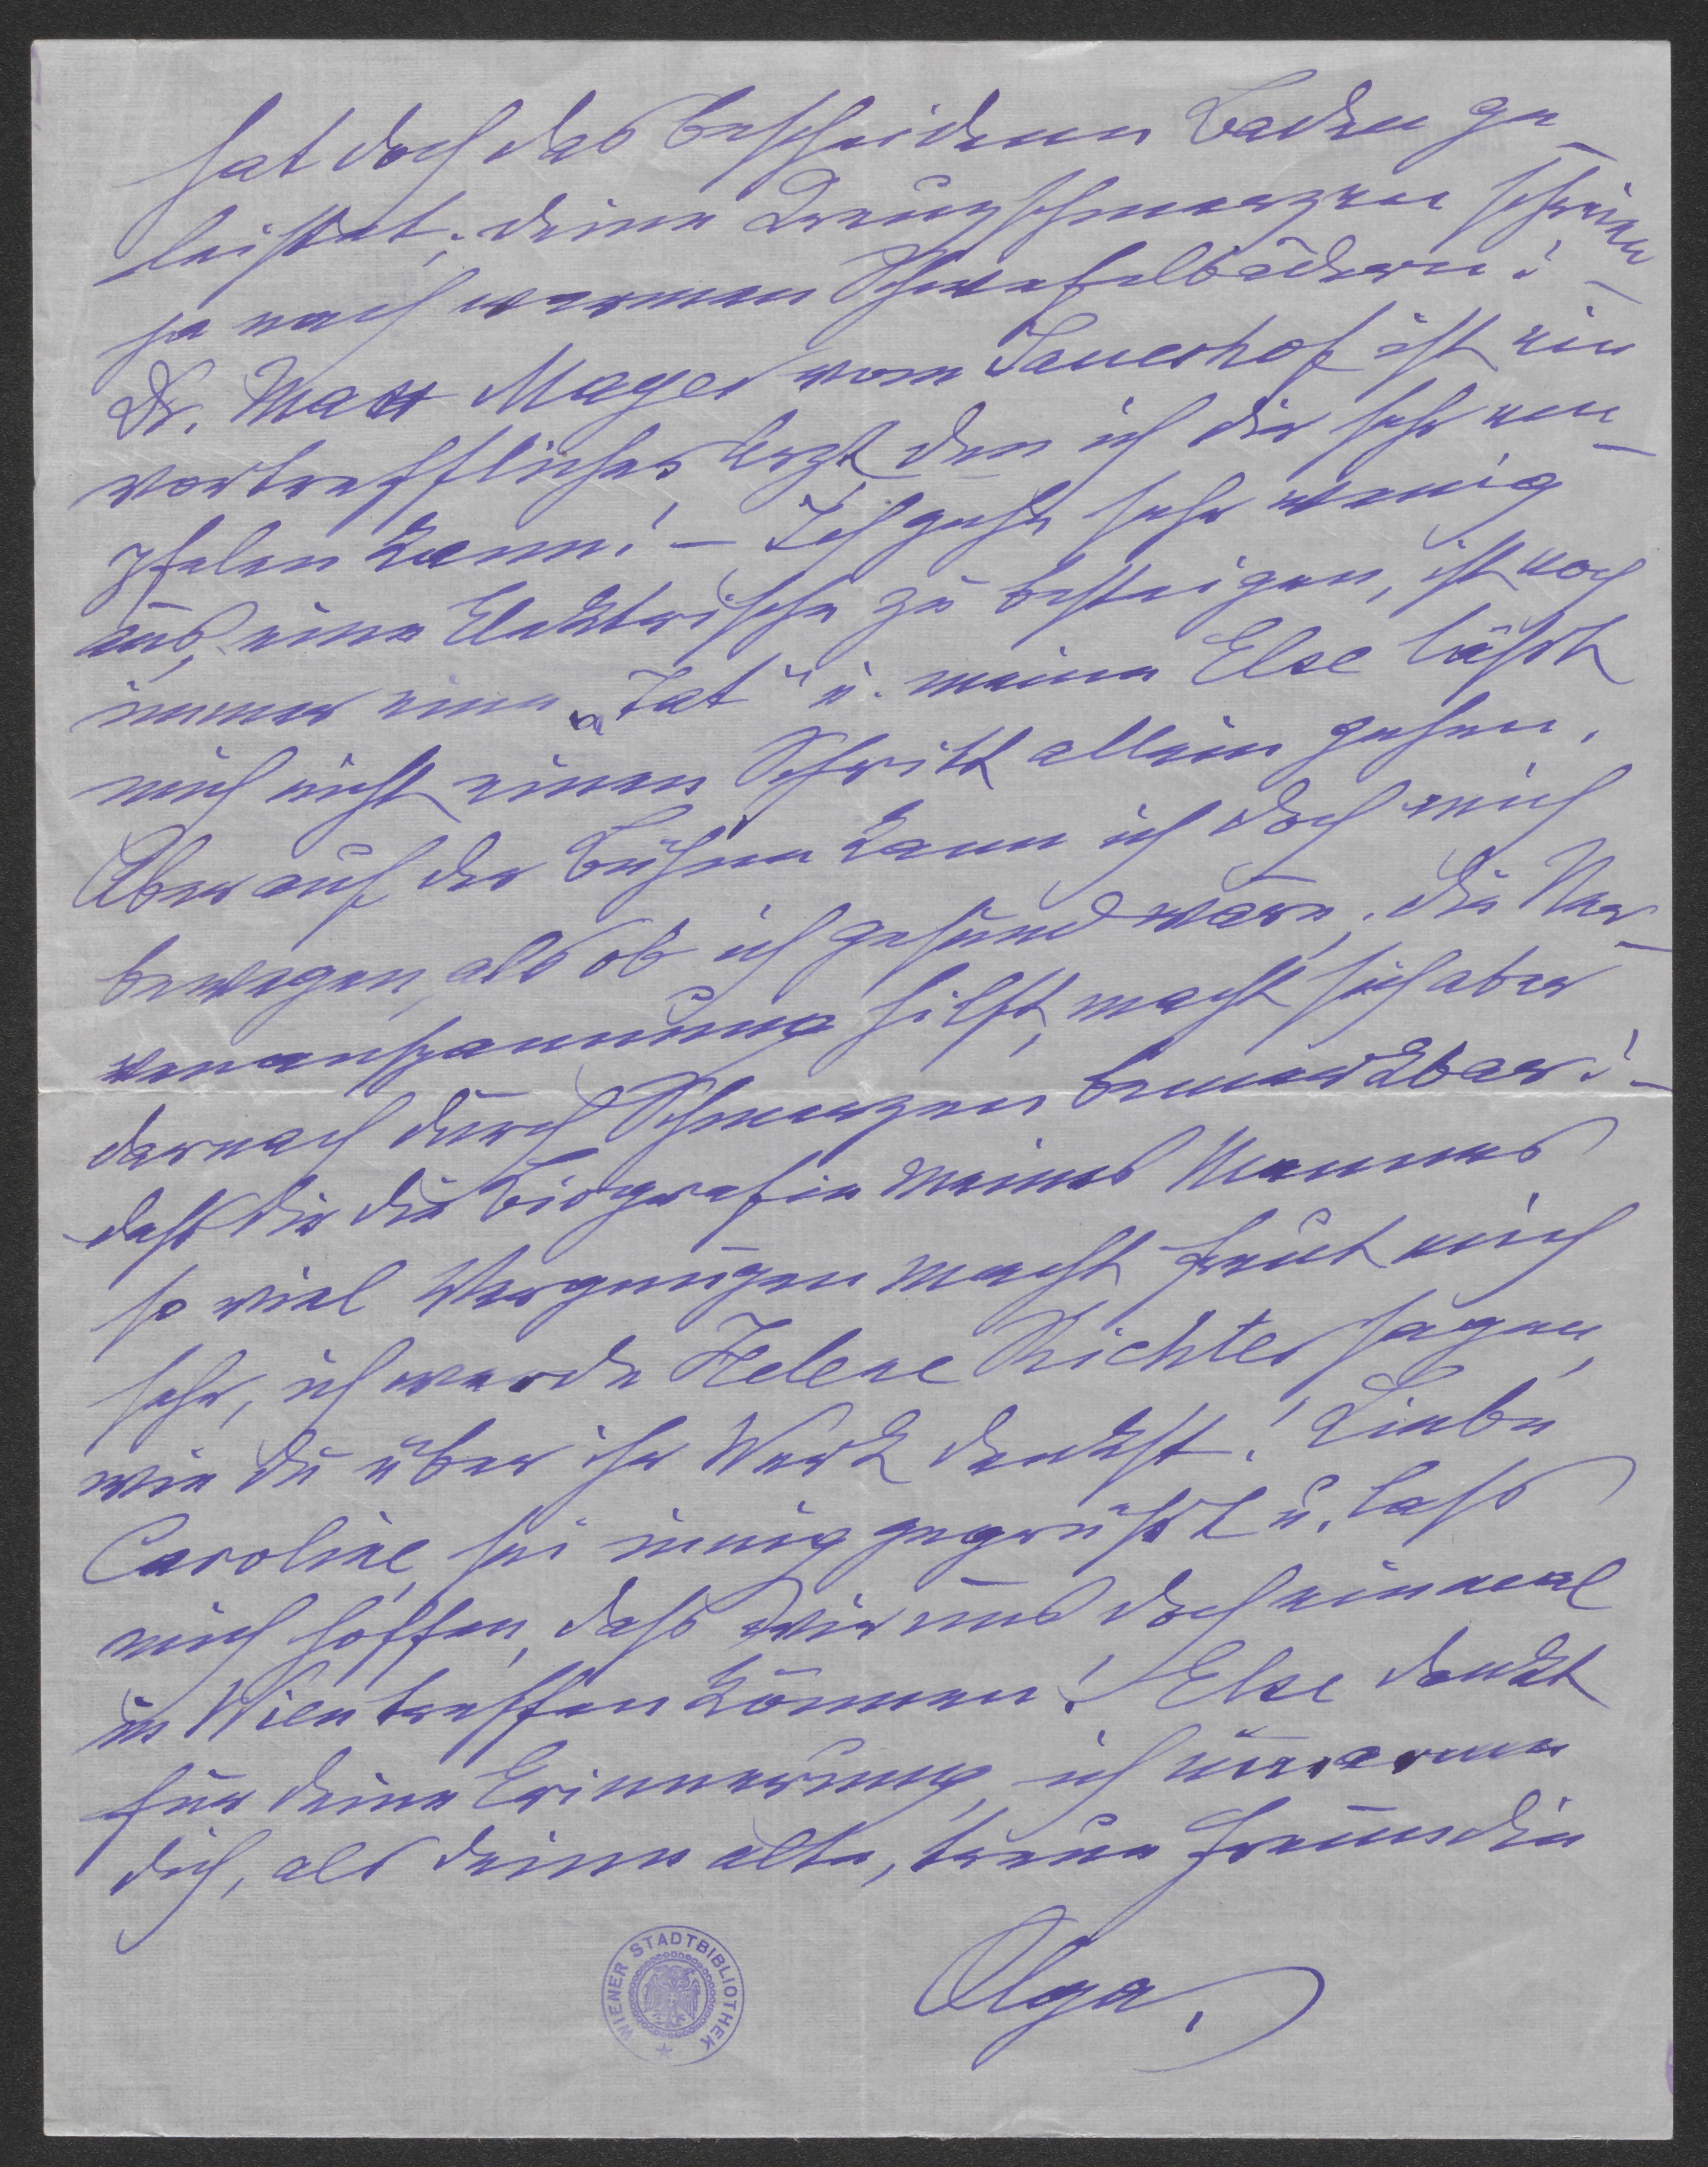 hat doch das bescheidene Baden ge-
leistet; deine Kreuzschmerzen schreien
ja nach warmen Schwefelbädern! -
Dr. Max Mayer vom Sauerhof ist ein
vortrefflicher Arzt den ich dir sehr em-
pfelen kann! - Ich gehe sehr wenig
aus, eine Elektrische zu besteigen, ist noch
immer eine „Tat" u. meine Else läßt
mich nicht einen Schritt allein gehen.
Aber auf der Bühne kann ich doch mich
bewegen, als ob ich gesund wäre, die Ner-
venanspannung hilft, macht sich aber
darnach durch Schmerzen bemerkbar! -
daß dir die Biografie meines Mannes
so viel Vergnügen macht freut mich
sehr, ich werde Helene Richter sagen,
wie du über ihr Werk denkst! Liebe
Caroline, sei innig gegrüßt u. lass
mich hoffen, dass wir uns doch einmal
in Wien treffen können! Else dankt
für deine Erinnerung, ich umarme
dich, als deine alte, treue Freundin
Olga.
WIENER STADTBIBLIOTHEK